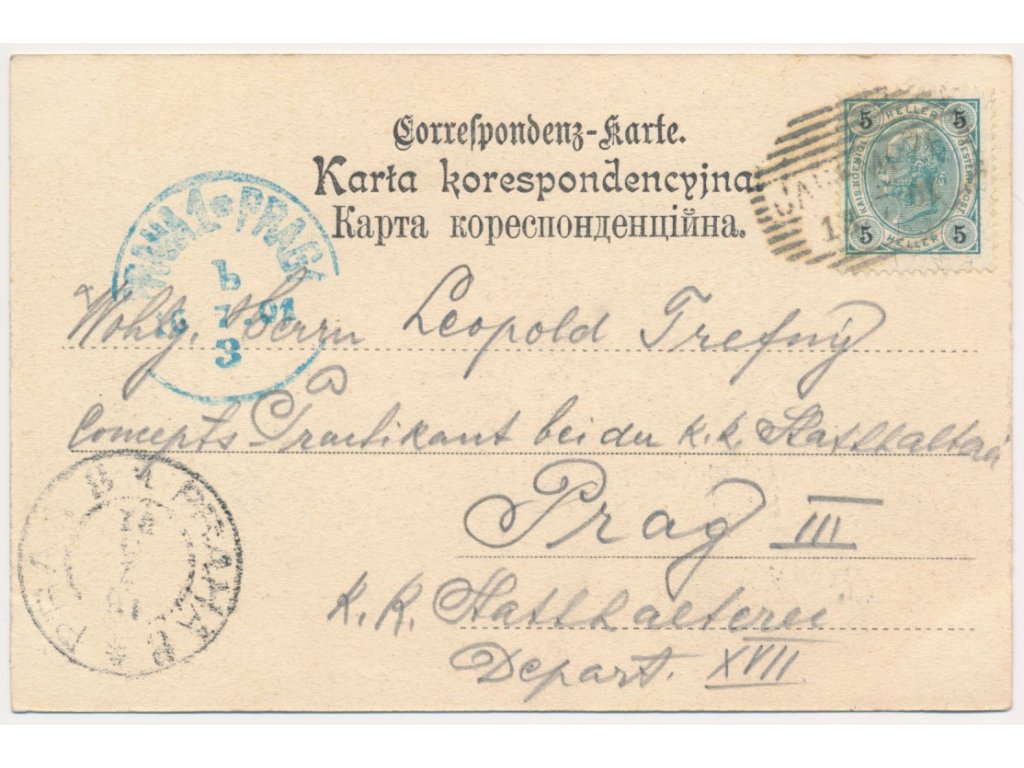 Correſpondenz-Karte.
Karta korespondencyjna.
Карта кореспонденційна.
5 HELLER 5
KAIS.KOENIGL. OESTERR.POST
5 HELLER 5
PRAHA 1 PRAG
b
16 7 01
3
Wohlg. Herrn Leopold Trefný
Concepts Practikant bei der k.k. Statthalterei
Prag III
K. K. Statthalterei
Depart. XVII